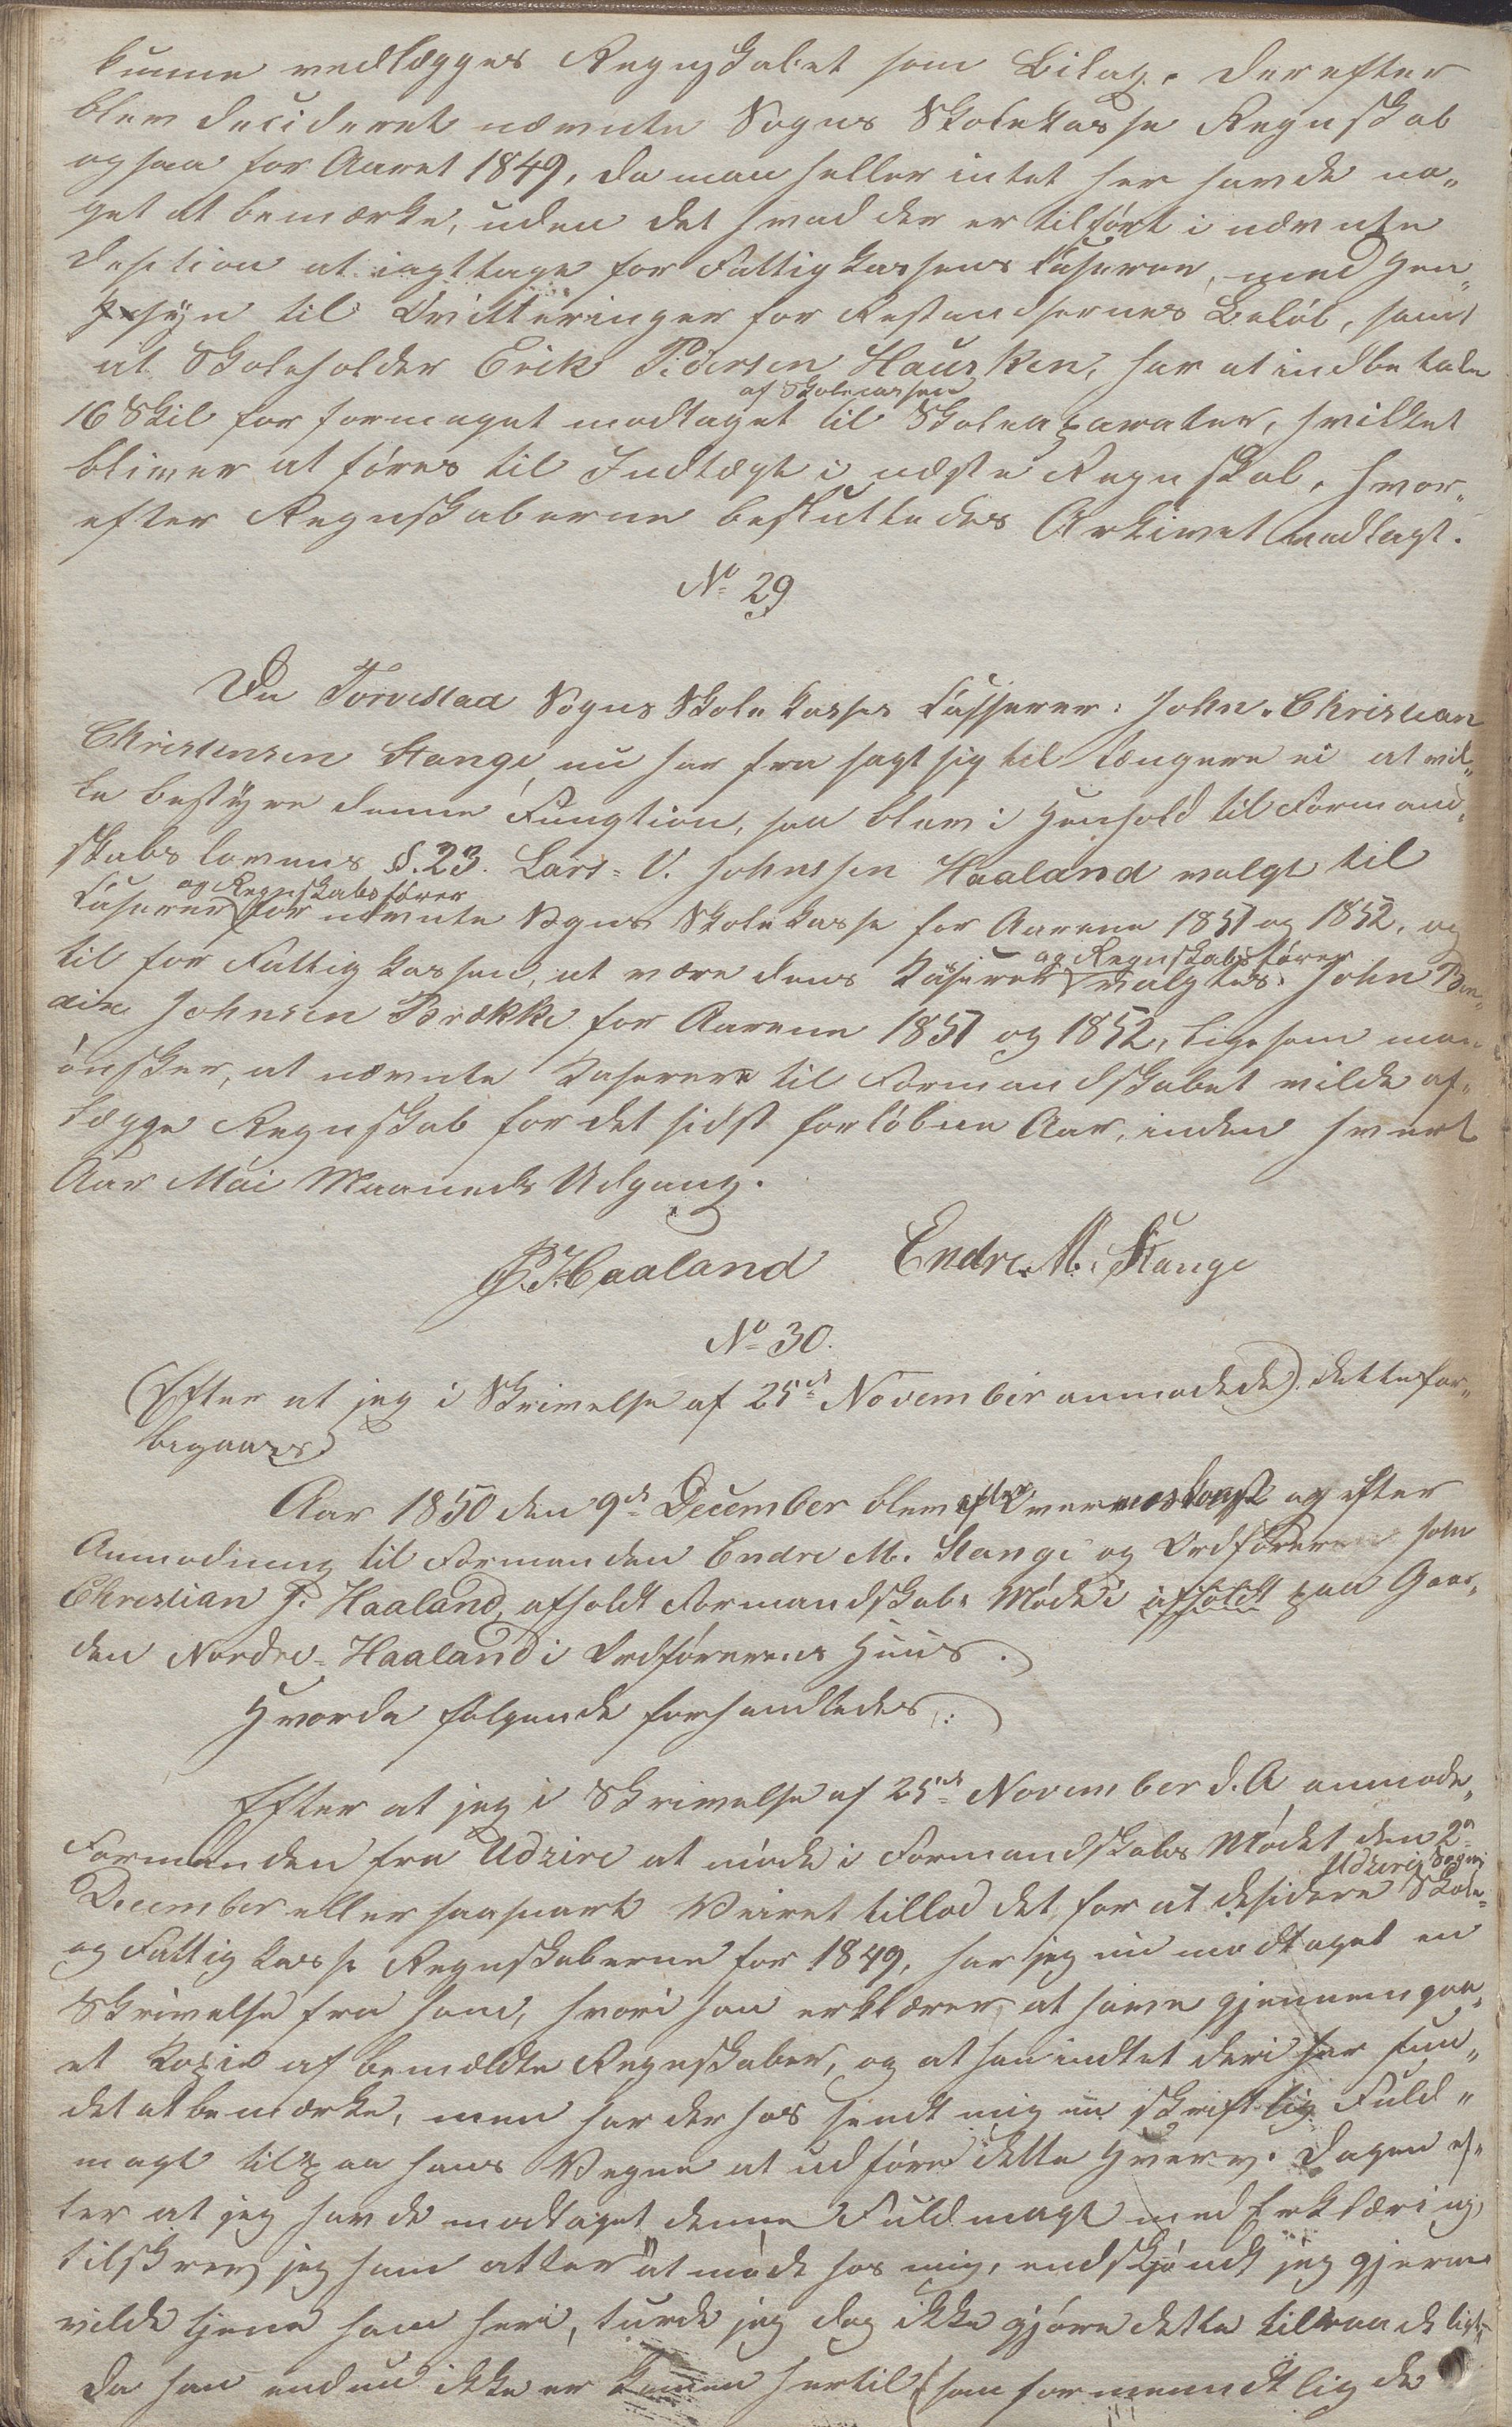 kunne vedlægges Regnskabet som Bilag. Derefter
blev decideret nævnte Sogns Skolekasse Regnskab
ogsaa for Aaret 1849, da man heller intet her havde no„
get at bemærke, uden det hvad der er tilført i nævnte
Desition at iagttage for Fattigkassens Kasserer, med Hen„
syn til Qvitteringer for Restandsernes Beløb, samt
at Skoleholder Erik Pedersen Hausken, har at indbetale
af Skolecassen
16 Skil for formeget modtaget til Skoleaparater, hvilket
bliver at føres til Indtægt i næste Regnskab, hvor„
efter Regnskaberne besluttedes Arkivet vedlagt.
No 29
Da Torvestad Sogns Skolekasses Casserer: John Christian
Christensen Stange, nu har fra sagt sig til længere ei at vil„
le bestyre denne Fungtion, saa blev i Henhold til Formand„
skabslovens §. 23. Lars V. Johnssen Haaland valgt til
og Regnskabsfører
Caserer for nævnte Sogns Skolekasse for Aarene 1851 og 1852, og
og Regnskabsfører
til for Fattigkassen, at være dens Kaserer valgtes John Ben„
dix Johnsen Brække for Aarene 1851 og 1852, ligesom man
ønsker, at nævnte Kaserere til Formandskabet vilde af„
lægge Regnskab for det sidst forløbne Aar, inden hvert
Aar Mai Maaneds Udgang.
Haaland Endre M. Stange
No 30.
(Efter at jeg i Skrivelse af 25de November anmodede) dette for„
bigaaes
Aar 1850 den 9de December blev efter Overenskomst og efter
Anmodning til Formanden Endre M. Stange og Ordføreren John
Christian J. Haaland, afholdt Formandskabs Møde i afholdt paa Gaar„
den Nordre Haaland i Ordførerens Huus.
Hvorda følgende forhandledes:
Efter at jeg i Skrivelse af 25de November d. A. anmode„
Formanden fra Udzire at møde i Formandskabs Mødet den 2n
Udzire Sogns
December eller saasnart Veiret tillod det for at desidere Skole„
og Fattigkasse Regnskaberne for 1849, har jeg nu modtaget en
Skrivelse fra ham, hvori han erklærer, at have gjennemgaa„
et Kopie af bemældte Regnskaber, og at han indtet deri har fun„
det at bemærke, men har derhos sendt mig en skriftlig Fuld„
magt til paa hans Vegne at udføre dette Hverv. Dagen ef„
ter at jeg havde modtaget denne Fuldmagt med Erklæring,
tilskrev jeg ham atter at møde hos mig, endskjøndt jeg gjerne
vilde tjene ham heri, turde jeg dog ikke gjøre dette tilraadeligt
da han endnu ikke er kommen hertil (han formeendtlig de